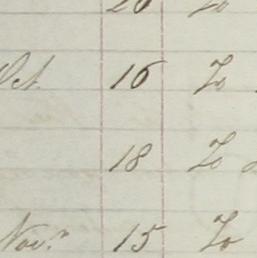 20 To
Oct. 16 To
18 To
Nov.r 15 To